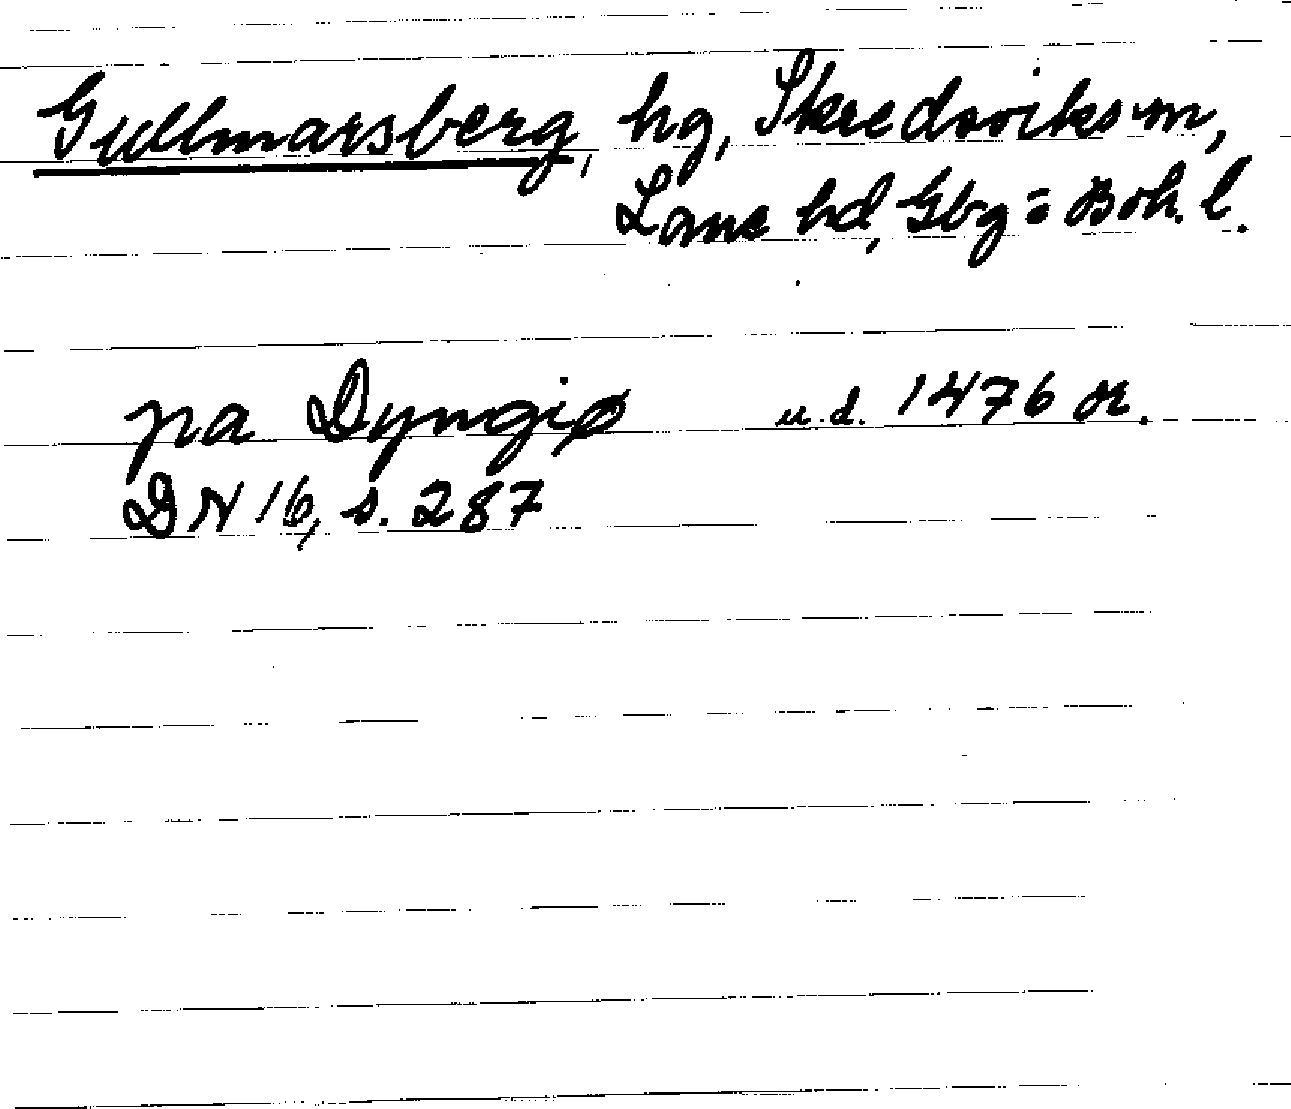 Gullmarsberg, hg, Skredsviks sn,
Lane hd, Gbg = Boh. l.
pa Dyngiø u.d. 1476 or.
DN 16, s. 287